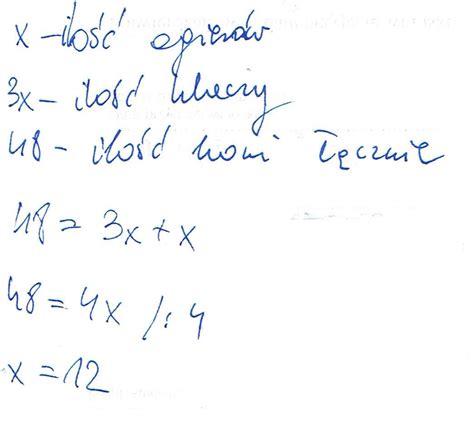 x - ilość ogierów
3x - ilość klaczy
48 - ilość koni łącznie
48 = 3x + x
48 = 4x /: 4
x = 12